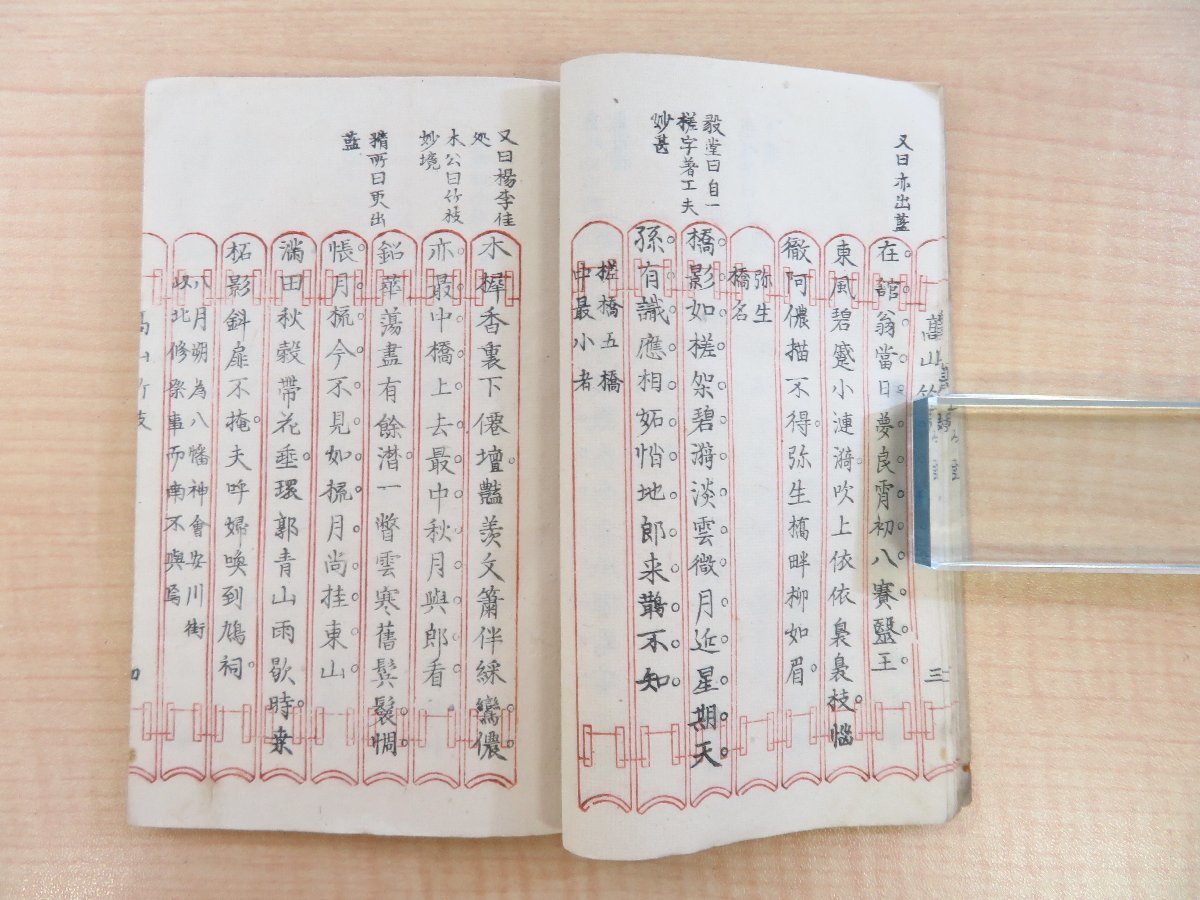 又曰亦出藍
毅堂曰自一
槎字著工夫
妙甚
在。舘。翁。當。日。夢。良。宵。初。八。賽。醫。王。
東風碧蹙小漣漪。吹上依依裊裊枝。惱
徹阿儂描不得。弥生橋畔柳如眉。
弥生
橋名
橋。影。如。槎。架。碧。漪。淡。雲。微。月。近。星。期。天。
孫。有。識。應。相。妬。悄。地。郎。来。鵲。不。知。
槎橋五橋
中最小者
又曰楊李佳
処
木公曰竹枝
妙境
精所曰更出
藍
木樨香裏下僊壇。豔羨文簫伴綵鸞。儂。
亦。最。中。橋。上。去。最。中。秋。月。與。郎。看。
鉛華蕩盡有餘潸。一瞥雲寒舊鬂鬟。惆。
悵。月。梳。今。不。見。如。梳。月。尚。挂。東。山
満田秋穀帶花垂。環郭青山雨歇時。桒
柘影斜扉不掩。夫呼婦喚到鳩祠。
八月朔為八幡神會安川街
以北修祭事而南不與焉
高山竹枝